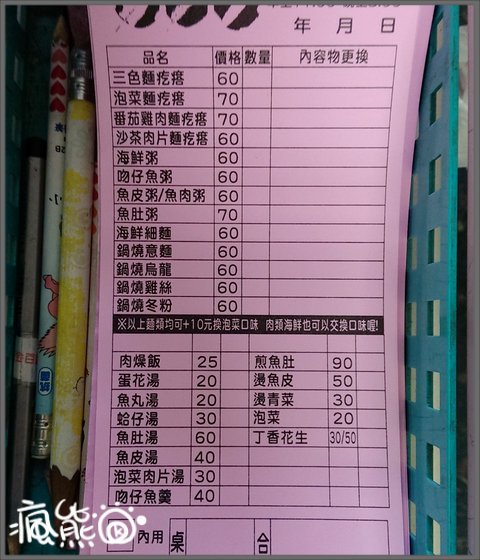 年 月 日
品名 價格 數量 內容物更換
三色麵疙瘩 60
泡菜麵疙瘩 70
番茄雞肉麵疙瘩 70
沙茶肉片麵疙瘩 60
海鮮粥 60
吻仔魚粥 60
魚皮粥/魚肉粥 60
魚肚粥 70
海鮮細麵 60
鍋燒意麵 60
鍋燒烏龍 60
鍋燒雞絲 60
鍋燒冬粉 60
※以上麵類均可+10元換泡菜口味 肉類海鮮也可以交換口味喔!
肉燥飯 25 煎魚肚 90
蛋花湯 20 燙魚皮 50
魚丸湯 20 燙青菜 30
蛤仔湯 30 泡菜 20
魚肚湯 60 丁香花生 30/50
魚皮湯 40
泡菜肉片湯 30
吻仔魚羹 40
內用 桌 合
瘋熊